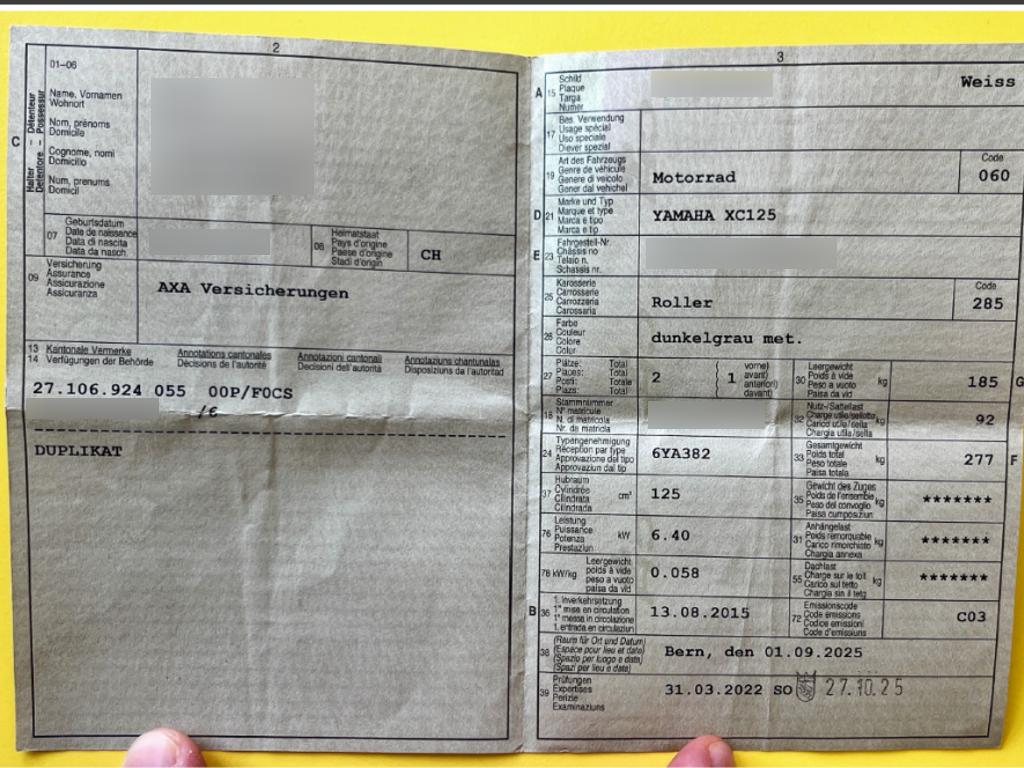 2
01-06
Halter - Détenteur
Detentore - Possessur
C
Name, Vornamen
Wohnort
Nom, prénoms
Domicile
Cognome, nomi
Domicilio
Num, prenums
Domicil
07
Geburtsdatum
Date de naissance
Data di nascita
Data da nasch.
08
Heimatstaat
Pays d'origine
Paese d'origine
Stadi d'origin
CH
09
Versicherung
Assurance
Assicurazione
Assicuranza
AXA Versicherungen
13 Kantonale Vermerke
14 Verfügungen der Behörde
Annotations cantonales
Décisions de l'autorité
Annotazioni cantonali
Decisioni dell'autorità
Annotaziuns chantunalas
Disposiziuns da l'autoritad
27.106.924 055 00P/F0CS
/€
DUPLIKAT
3
A 15
Schild
Plaque
Targa
Numer
Weiss
17
Bes. Verwendung
Usage spécial
Uso speciale
Diever spezial
19
Art des Fahrzeugs
Genre de véhicule
Genere di veicolo
Gener dal vehichel
Motorrad
Code
060
D 21
Marke und Typ
Marque et type
Marca e tipo
Marca e tip
YAMAHA XC125
E 23
Fahrgestell-Nr.
Châssis no
Telaio n.
Schassis nr.
25
Karosserie
Carrosserie
Carrozzeria
Carossaria
Roller
Code
285
26
Farbe
Couleur
Colore
Colur
dunkelgrau met.
27
Plätze: Total
Places: Total
Posti: Totale
Plazs: Total
2
vorne)
avant)
anteriori)
davant)
1
30
Leergewicht
Poids à vide
Peso a vuoto
Paisa da vid
kg
185 G
18
Stammnummer
N° matricule
N. di matricola
Nr. da matricla
32
Nutz-/Sattellast
Charge utile/sellette
Carico utile/sella
Chargia utila/sella
kg
92
24
Typengenehmigung
Réception par type
Approvazione del tipo
Approvaziun dal tip
6YA382
33
Gesamtgewicht
Poids total
Peso totale
Paisa totala
kg
277 F
37
Hubraum
Cylindrée
Cilindrata
Cilindrada
cm³
125
35
Gewicht des Zuges
Poids de l'ensemble
Peso del convoglio
Paisa cumposiziun
kg
*******
76
Leistung
Puissance
Potenza
Prestaziun
kW
6.40
31
Anhängelast
Poids remorquable
Carico rimorchiato
Chargia annexa
kg
*******
78 kW/kg
Leergewicht
poids à vide
peso a vuoto
paisa da vid
0.058
55
Dachlast
Charge sur le toit
Carico sul tetto
Chargia sin il tetg
kg
*******
B 36
1. Inverkehrsetzung
1re mise en circulation
1a messa in circolazione
1. entrada en circulaziun
13.08.2015
72
Emissionscode
Code émissions
Codice emissioni
Code d'emissiuns
C03
38
(Raum für Ort und Datum)
(Espace pour lieu et date)
(Spazio per luogo e data)
(Spazi per lieu e data)
Bern, den 01.09.2025
39
Prüfungen
Expertises
Perizie
Examinaziuns
31.03.2022 SO
27.10.25